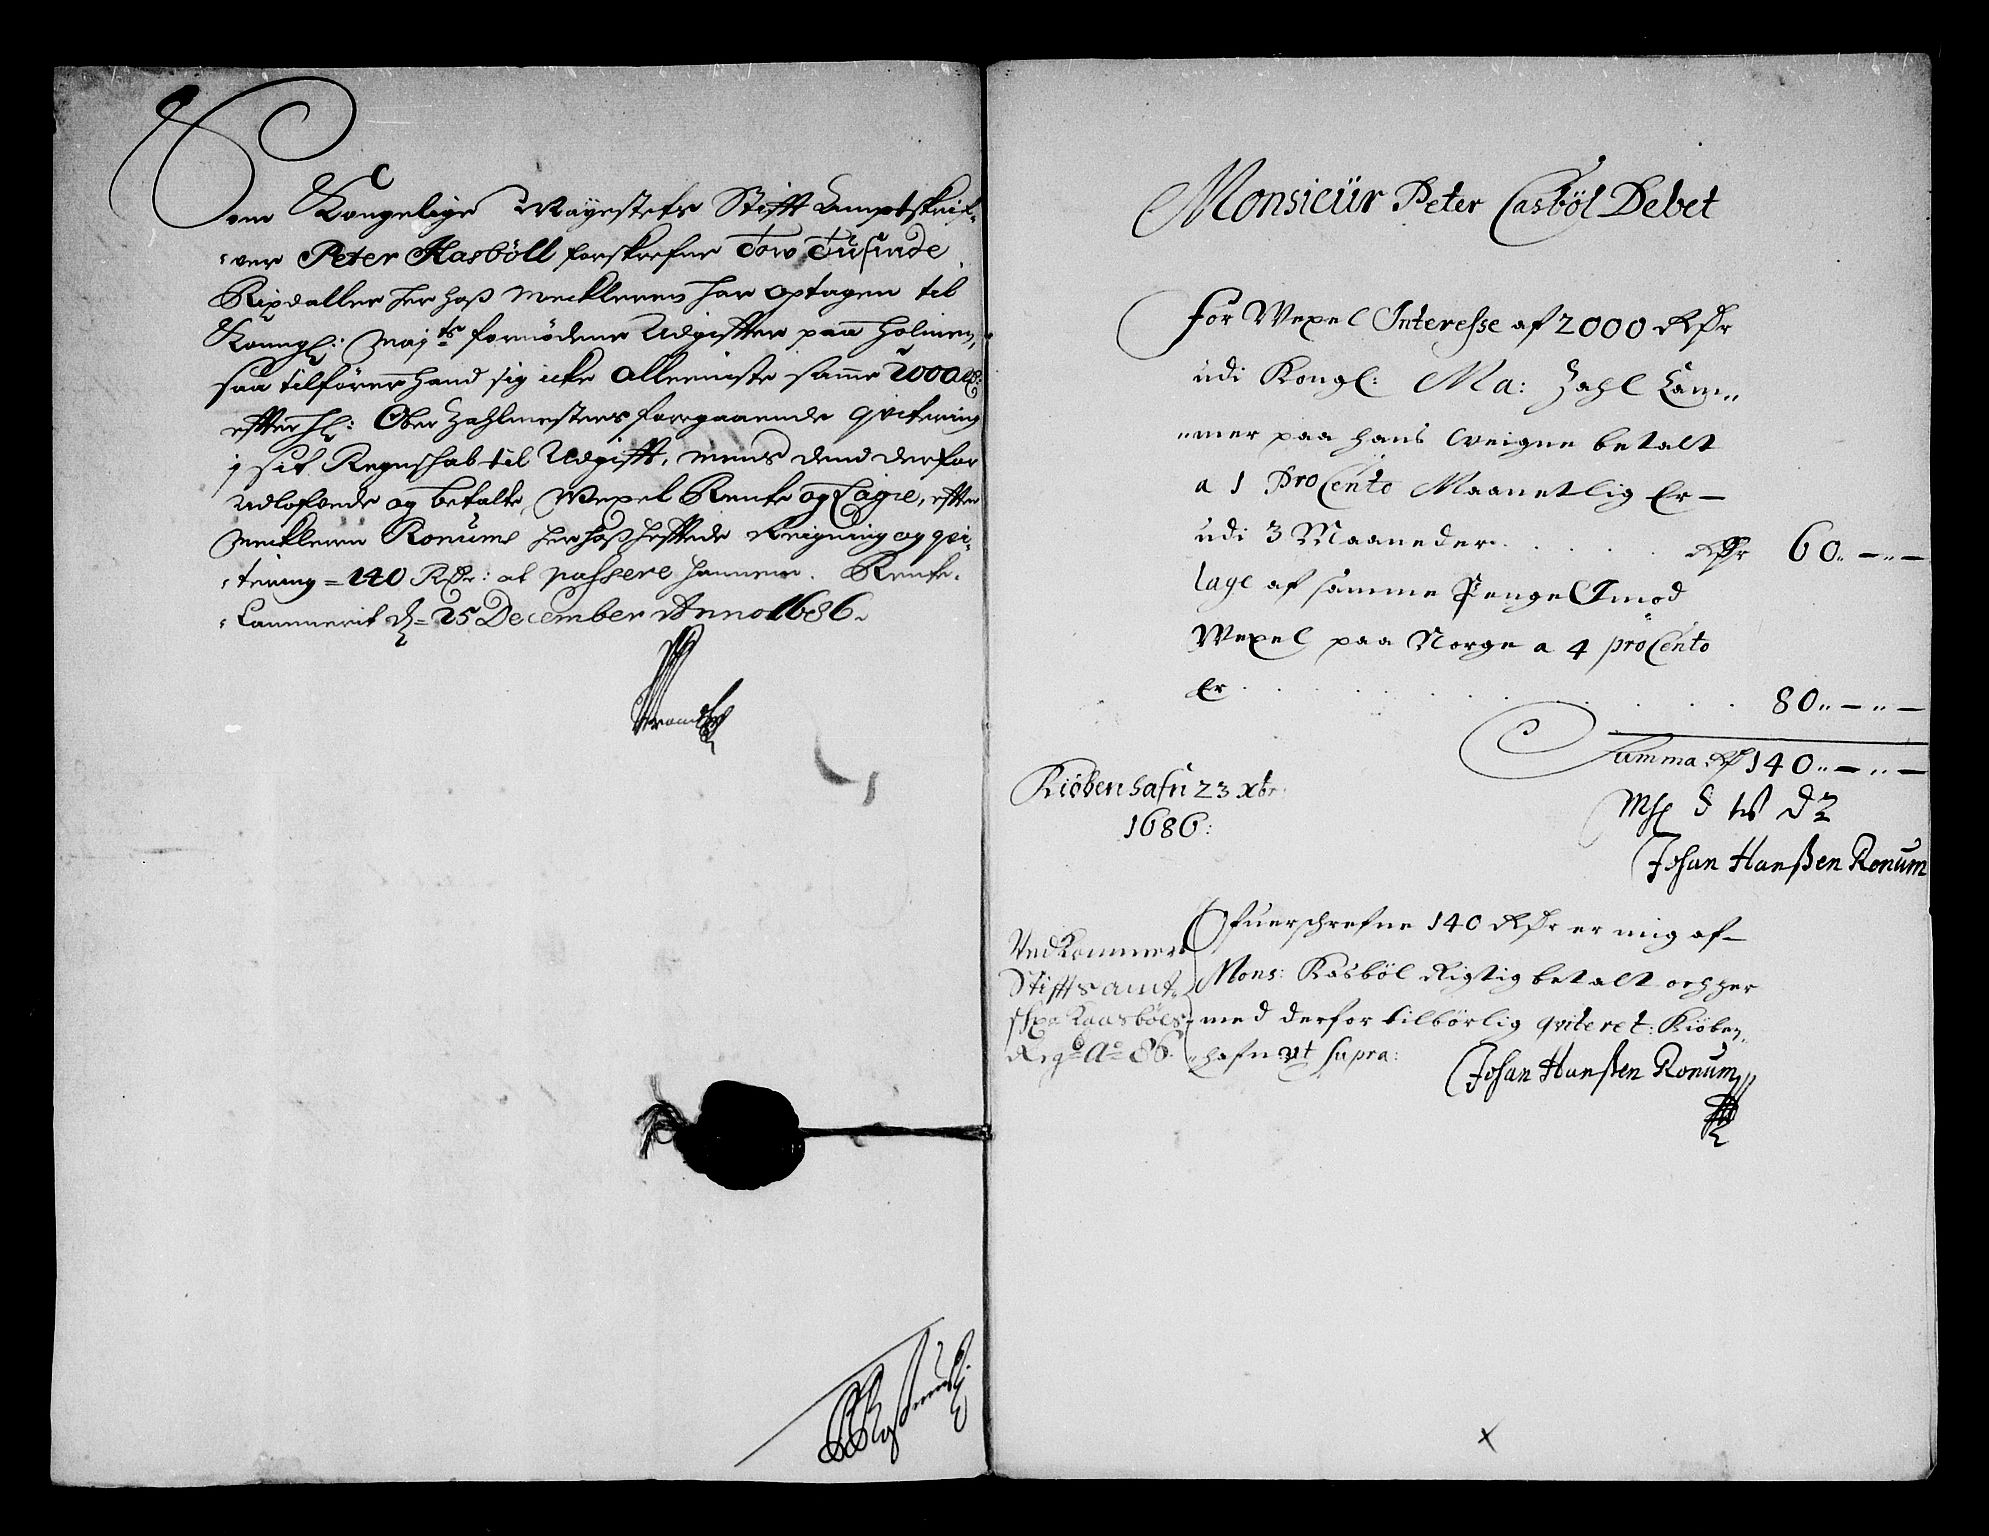 Som Kongelige Mayestets Stifft Amptskrif-
-ver Peter Kasböll forskrefne Tow Tusinde
Rixdaller her hoß Mecklerens har optagen til
Kongl: Maj:ts fornödene Udgiffter paa Holmen,
saa tilförer hand sig icke alleeniste samme 2000 Rd:
effter Hr: Ober Zahlmesters foregaaende qvitering
j sit Regnschab til Udgifft, mens dend derfor
udlofvede og betalte Wexel Rente og Lagie, effter
Mecklerens Ronums her hoß hefftede Reigning og qvi-
-tering = 140 Rdr: at passere hannem. Rente-
-Cammerit d. = 25 December Anno 1686.
Monsieur Peter Casböl Debet
for Wexel Interesse af 2000 Rdr
udi Kongl: Ma: Zahl Cam-
-mer paa hans weigne betalt
a 1 ProCento Maanetlig Er
udi 3 Maaneder . . . . . Rdr 60
lage af samme Penge Imod
Wexel paa Norge a 4 proCento
Er . . . . . . . . . . 80
Summa Rd 140
Kiöbenhafn 23 xbr
1686:
Johan Hanßen Ronum
Ofuerschrefne 140 Rdr er mig af
Mons: Kasböl Rigtig betalt och her
med derfor tilbörlig qviteret: Kiöben-
-hafn ut supra:
Johan Hanßen Ronum
Vedkommer
Stifftsamt-
Kaasböls
Regb Ao 86.